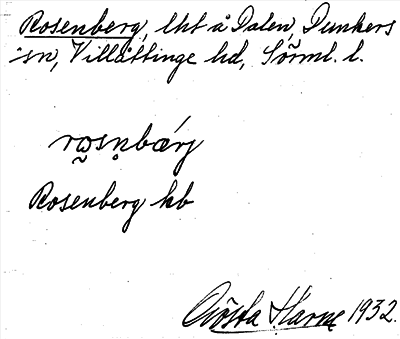 Rosenberg, lht å Dalen, Dunkers
sn, Villåttinge hd, Sörml. l.
rω̰sṇbǽrj
Rosenberg kb
Gösta Harne 1932.